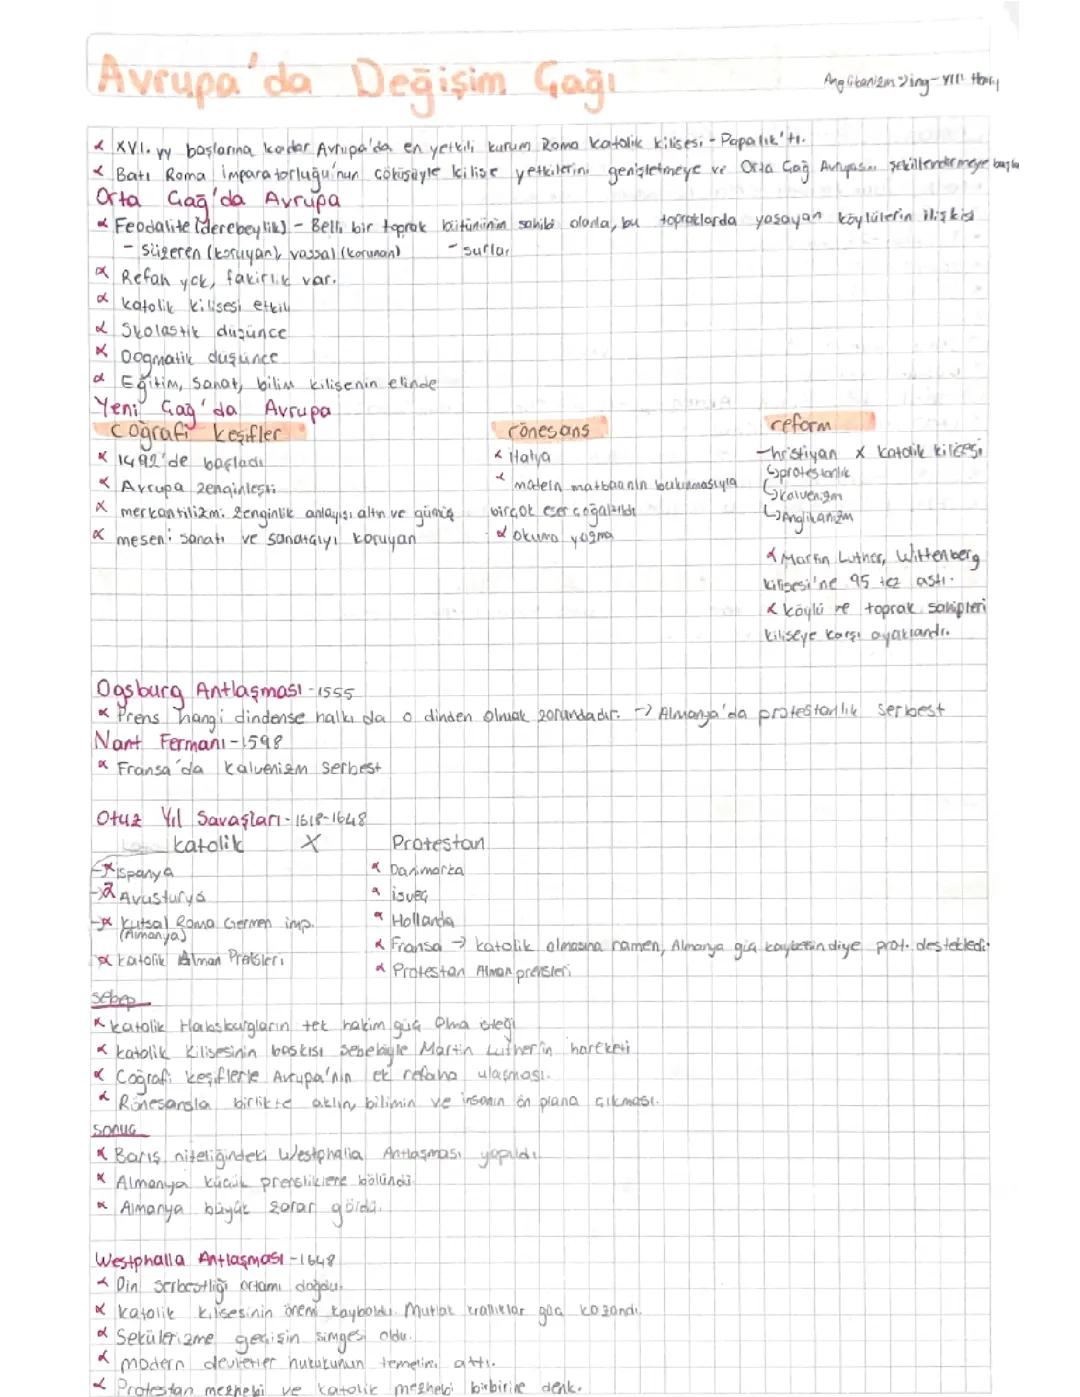 Avrupa'da Değişim Çağı
Anglikanizm => ing - VIII Henry
XVI. yy başlarına kadar Avrupa'da en yetkili kurum Roma Katolik Kilisesi - Papalık'tı.
Batı Roma İmparatorluğu'nun çöküşüyle kilise yetkilerini genişletmeye ve Orta Çağ Avrupasını şekillendirmeye başladı
Orta Çağ'da Avrupa
Feodalite (derebeylik) - Belli bir toprak bütününün sahibi olanla, bu topraklarda yaşayan köylülerin ilişkisi
- süzeren (koruyan), vassal (korunan) - surlar
Refah yok, fakirlik var.
Katolik kilisesi etkili
Skolastik düşünce
Dogmatik düşünce
Eğitim, Sanat, bilim kilisenin elinde
Yeni Çağ'da Avrupa
Coğrafi Keşifler
1492'de başladı
Avrupa zenginleşti
merkantilizm: zenginlik anlayışı altın ve gümüş
mesen: sanatı ve sanatçıyı koruyan
rönesans
İtalya
matein matbaanın bulunmasıyla
birçok eser çoğaltıldı
okuma yazma
reform
hristiyan x katolik kilisesi
↳ protestanlık
↳ Kalvenizm
↳ Anglikanizm
Martin Luther, Wittenberg
kilisesi'ne 95 tez astı.
köylü ve toprak sahipleri
kiliseye karşı ayaklandı.
Ogsburg Antlaşması - 1555
Prens hangi dindense halkı da o dinden olmak zorundadır. -> Almanya'da protestanlık serbest
Nant Fermanı - 1598
Fransa'da Kalvenizm serbest
Otuz Yıl Savaşları - 1618-1648
katolik X Protestan
İspanya
Avusturya
Kutsal Roma Germen imp.
(Almanya)
katolik Alman Prensleri
Danimarka
isveç
Hollanda
Fransa -> katolik olmasına ramen, Almanya güç kaybetsin diye prot. destekledi.
Protestan Alman prensleri
sebep
katolik Habsburgların tek hakim güç olma isteği
katolik kilisesinin baskısı sebebiyle Martin Luther'in hareketi
Coğrafi keşiflerle Avrupa'nın ek refaha ulaşması.
Rönesansla birlikte aklın, bilimin ve insanın ön plana çıkması.
sonuç
Barış niteliğindeki Westphalia Antlaşması yapıldı
Almanya küçük prensliklere bölündü
Almanya büyük zarar gördü.
Westphalla Antlaşması - 1648
Din serbestliği ortamı doğdu.
Katolik kilisesinin önemi kayboldu. Mutlak krallıklar güç kazandı.
Sekülerizme geçişin simgesi oldu.
modern devletler hukukunun temelini attı.
Protestan mezhebi ve katolik mezhebi birbirine denk.